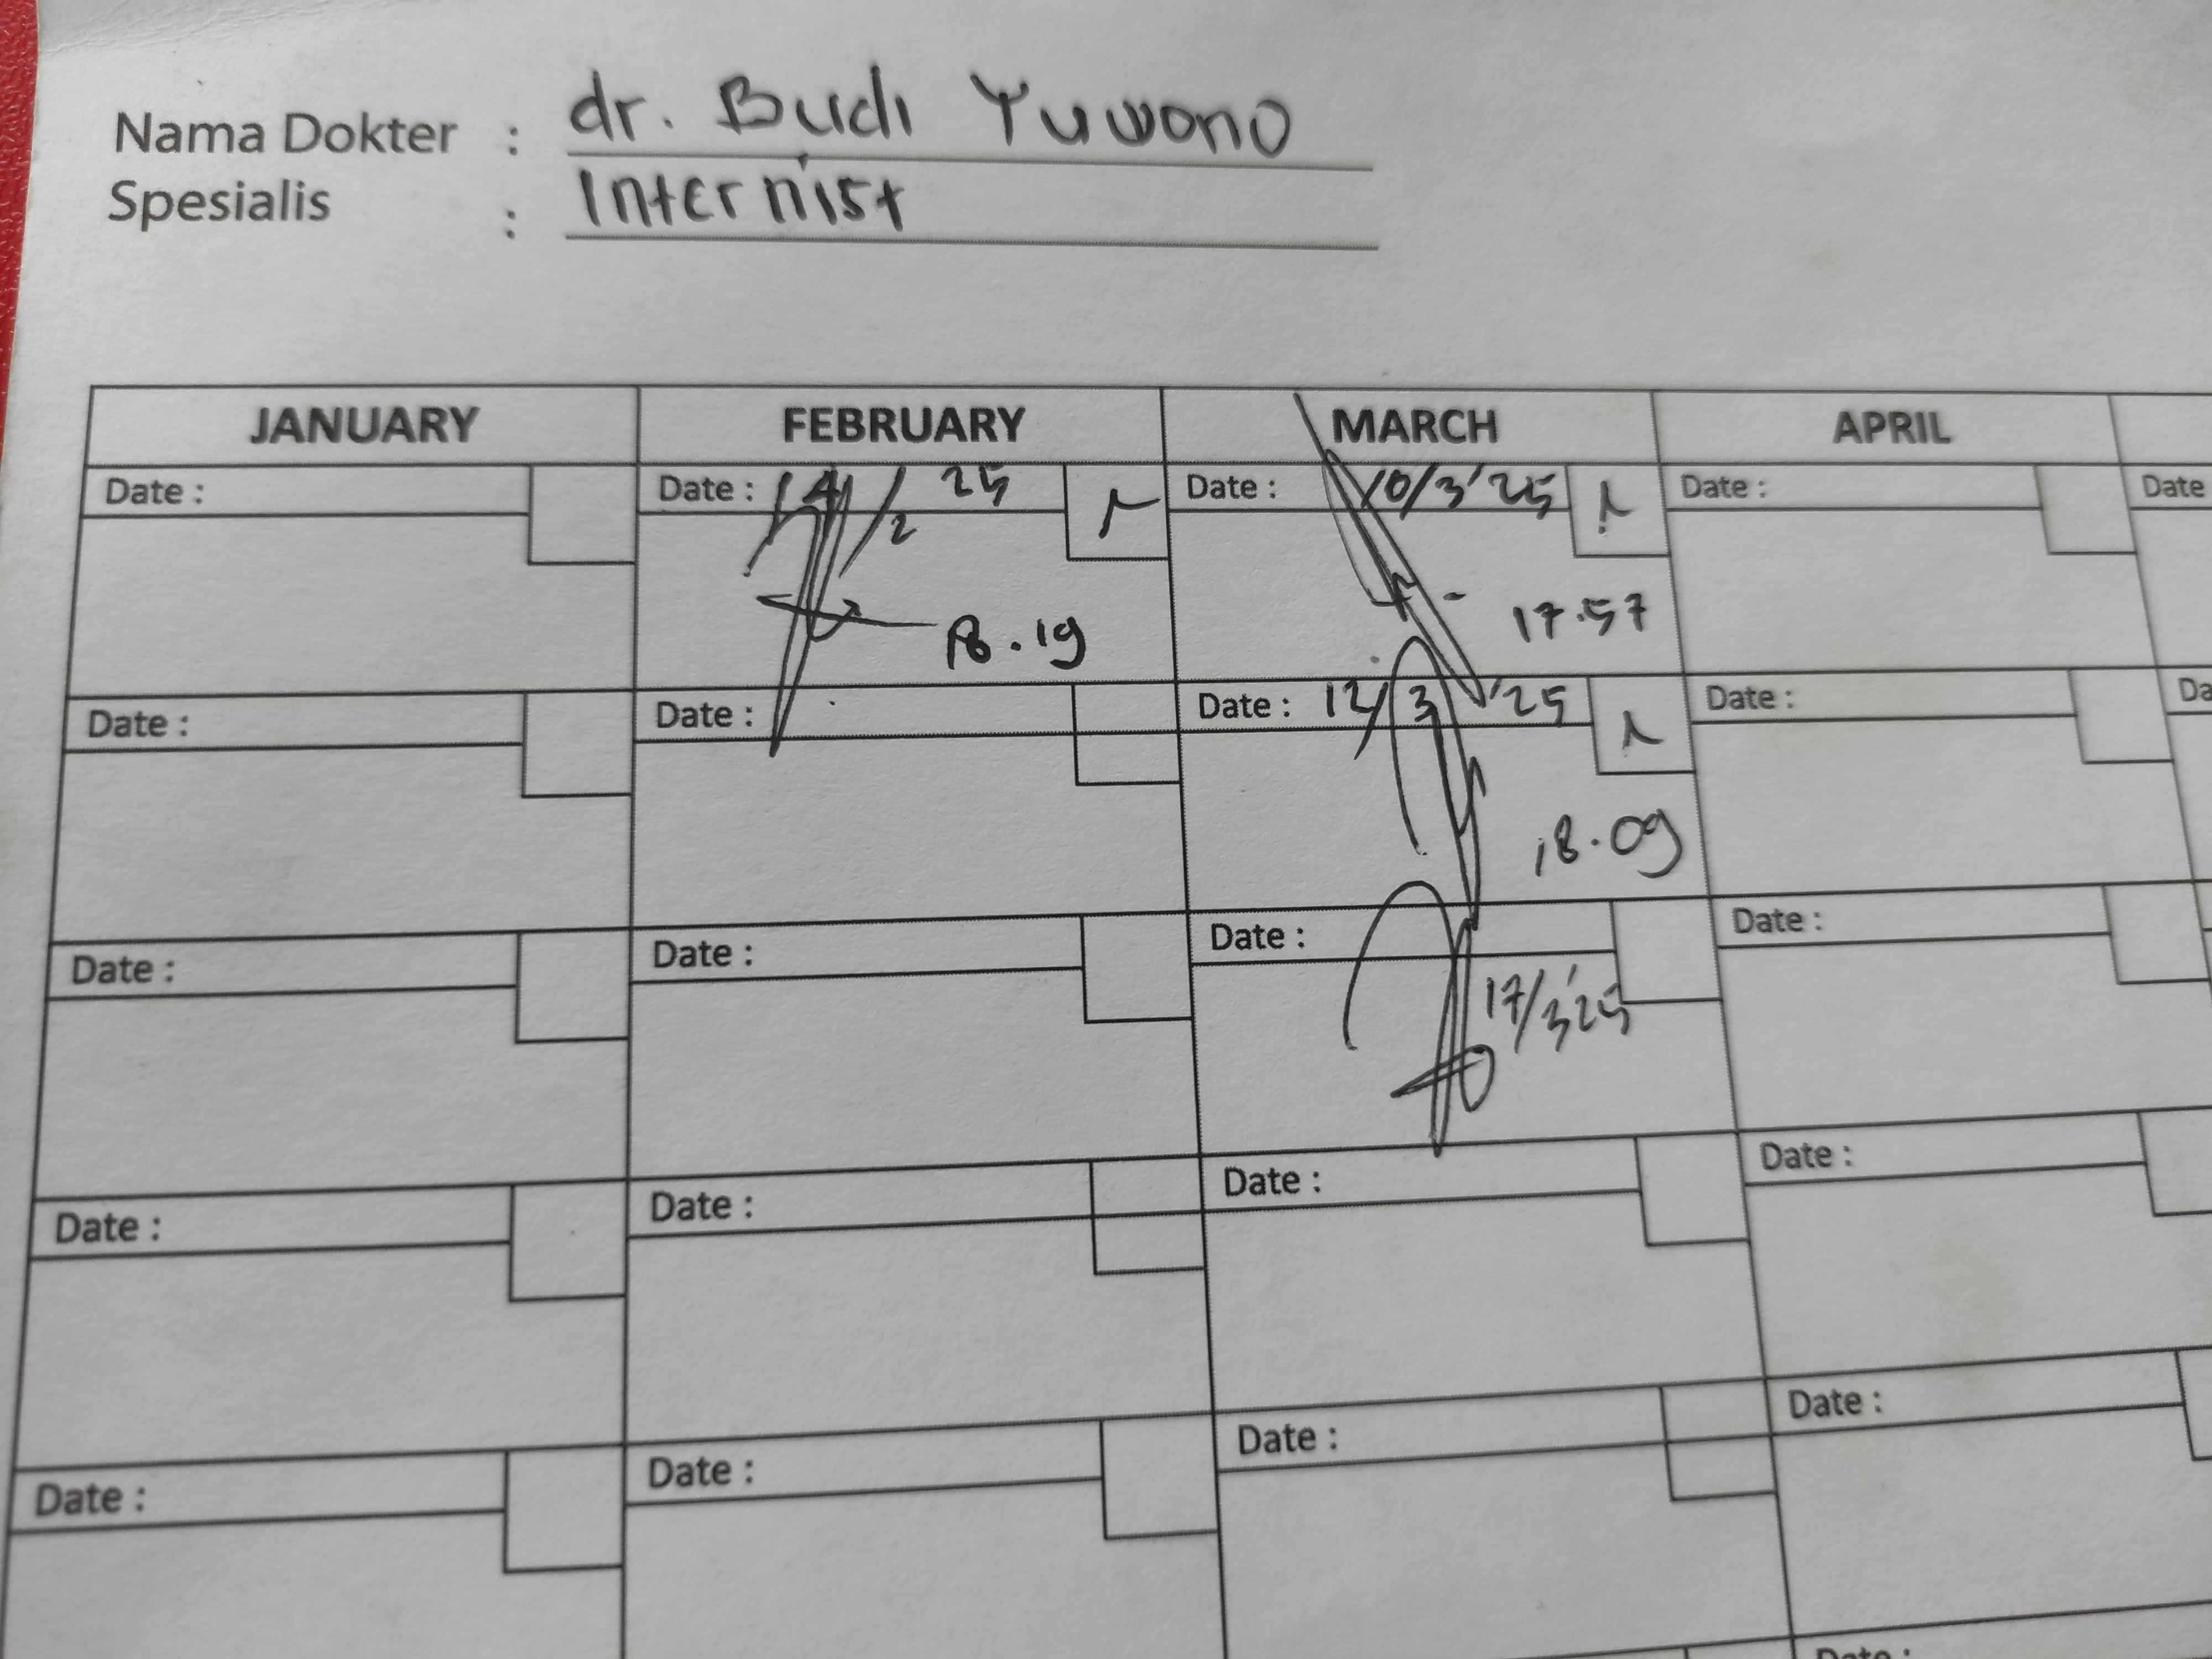 Nama Dokter : dr. Budi Yuwono
Spesialis : Internist
JANUARY FEBRUARY MARCH APRIL
Date : Date : 14/2 25 Date : 10/3'25 Date : Date
18.19 17.57
Date : Date : Date : 12/3 '25 Date : Da
18.09
Date : Date : Date : Date :
17/3'25
Date : Date : Date : Date :
Date : Date : Date : Date :
Date :